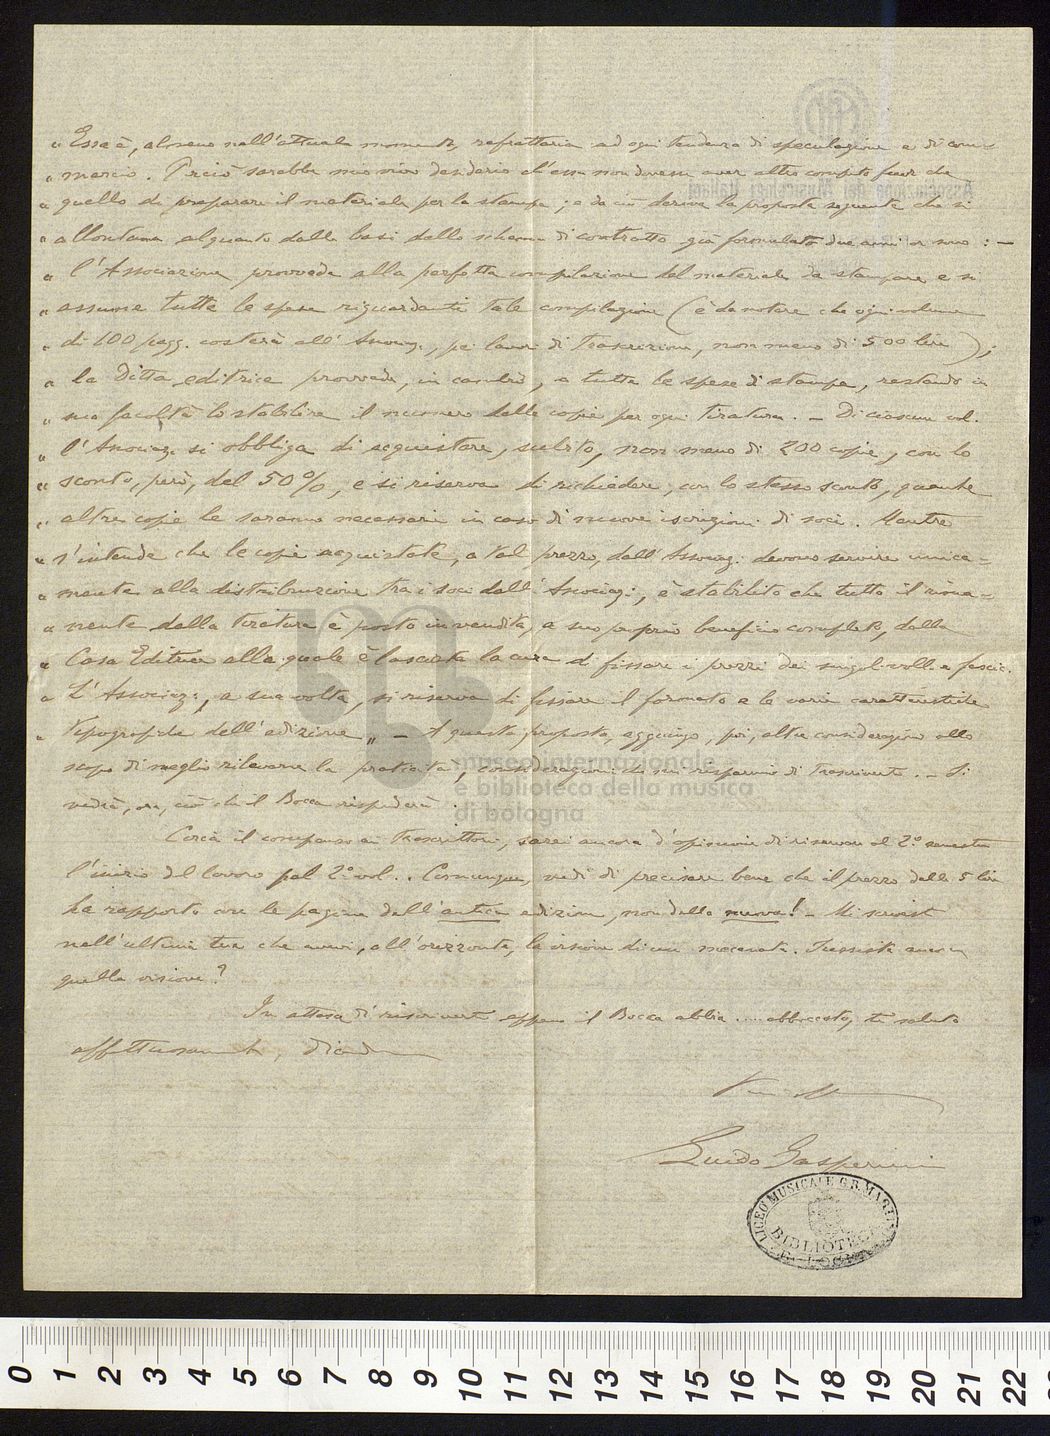 " Essa è, almeno nell'attuale momento, refrattaria ad ogni tendenza di speculazione e di com-
" mercio. Perciò sarebbe mio vivo desiderio ch'essa non dovesse aver altro compito fuor che
" quello di preparare il materiale per la stampa; e da ciò deriva la proposta seguente che si
" allontana alquanto dalle basi dello schema di contratto già formulato due anni or sono: —
" l'Associazione provvede alla perfetta compilazione del materiale da stampare e si
" assume tutte le spese riguardanti tale compilazione (è da notare che ogni volume
" di 100 pagg. costerà all'Associaz., pei lavori di trascrizione, non meno di 500 lire);
" la Ditta editrice provvede, in cambio, a tutte le spese di stampa, restando in
" sua facoltà lo stabilire il numero delle copie per ogni tiratura. — Di ciascun vol.
" l'Associaz. si obbliga di acquistare, subito, non meno di 200 copie, con lo
" sconto, però, del 50%, e si riserva di richiedere, con lo stesso sconto, quante
" altre copie le saranno necessarie in caso di nuove iscrizioni di soci. Mentre
" s'intende che le copie acquistate, a tal prezzo, dall'Associaz. devono servire unica-
" mente alla distribuzione tra i soci dell'Associaz., è stabilito che tutto il rima-
" nente della tiratura è posto in vendita, a suo proprio beneficio completo, dalla
" Casa Editrice alla quale è lasciata la cura di fissare i prezzi dei singoli voll. e fascic.
" L'Associaz., a sua volta, si riserva di fissare il formato e le varie caratteristiche
" tipografiche dell'edizione „ — A questa proposta, aggiungo, poi, altre considerazioni allo
scopo di meglio rilevarne la praticità, considerazioni che mi risparmio di trascriverti. — Si
vedrà, ora, ciò che il Bocca risponderà.
Circa il compenso ai trascrittori, sarei ancora d'opinione di riservare al 2° semestre
l'inizio del lavoro pel 2° vol.. Comunque, vedi di precisare bene che il prezzo delle 5 lire
ha rapporto con le pagine dell'antica edizione, non della nuova! — Mi scrivesti
nell'ultima tua che avevi, all'orizzonte, la visione di un mecenate. Sussiste ancora
quella visione?
In attesa di riscriverti appena il Bocca abbia .... abboccato, ti saluto
affettuosamente,
Guido Gasperini
Associazione dei Musicologi Italiani
museo internazionale
e biblioteca della musica
di bologna
LICEO MUSICALE G.B. MARTINI
BIBLIOTECA
BOLOGNA
0 1 2 3 4 5 6 7 8 9 10 11 12 13 14 15 16 17 18 19 20 21 22